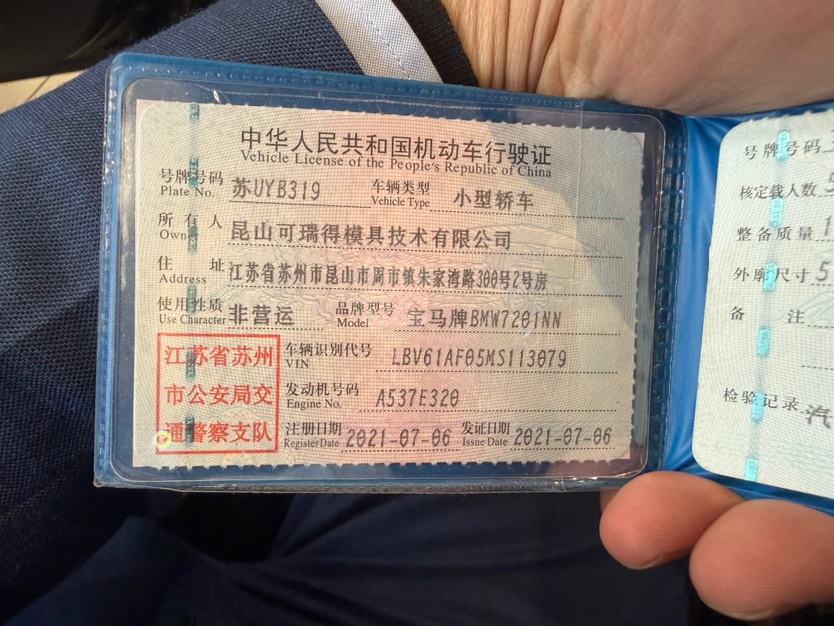 中华人民共和国机动车行驶证
Vehicle License of the People's Republic of China
号牌号码 苏UYB319 车辆类型 小型轿车
Plate No. Vehicle Type
所有人 昆山可瑞得模具技术有限公司
Owner
住址 江苏省苏州市昆山市周市镇朱家湾路300号2号房
Address
使用性质 非营运 品牌型号 宝马牌BMW7201NN
Use Character Model
江苏省苏州
市公安局交
通警察支队
车辆识别代号 LBV61AF05MS113079
VIN
发动机号码 A537E320
Engine No.
注册日期 2021-07-06 发证日期 2021-07-06
Register Date Issue Date
号牌号码
核定载人数
整备质量 1
外廓尺寸 5
备注
检验记录 汽